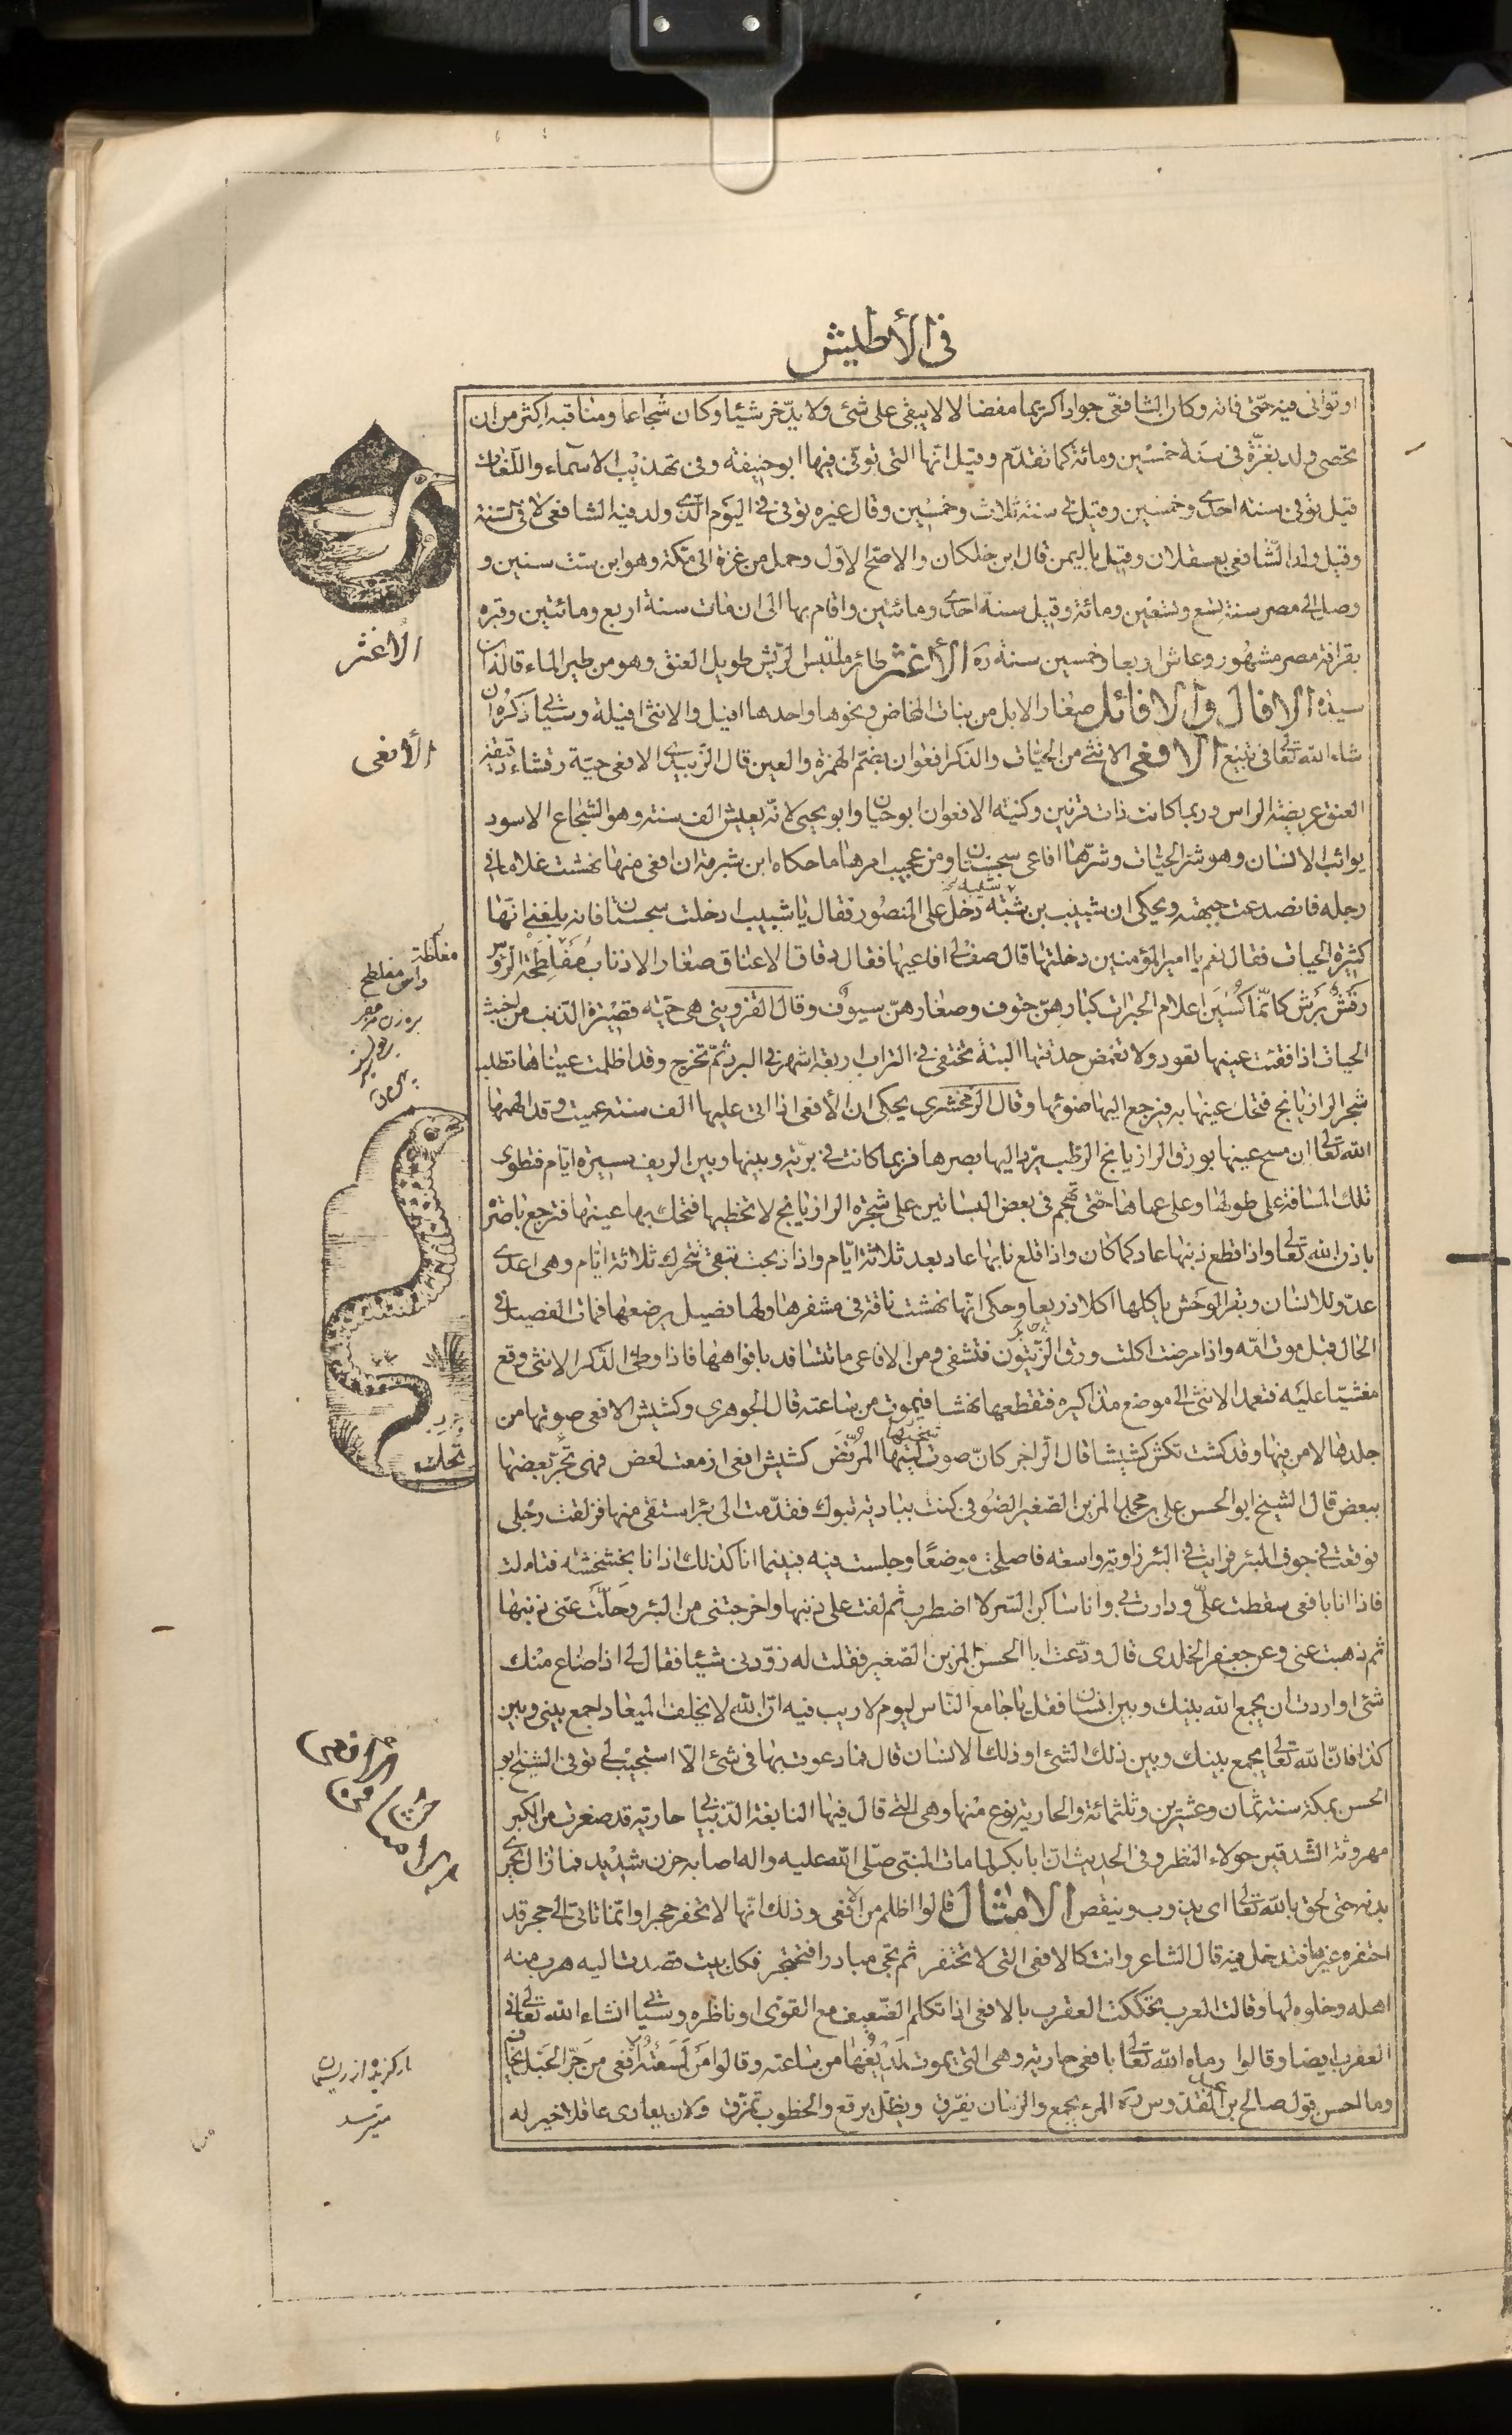 في الأطيش
او توانى فيه حتى فاته وكان الشافعي جوادا كريما مفضالا لا يبقى على شئ ولا يدّخر شيئا وكان شجاعا ومناقبه اكثر من ان
تحصى ولد بغزّة في سنة خمسين ومائة كما تقدّم وقيل انّها التى توفّى فيها ابو حنيفة وفي تهذيب الاسماء واللّغات
قيل توفى سنة احدى وخمسين وقيل في سنة ثلاث وخمسين وقال غيره توفى في اليوم الّذى ولد فيه الشافعى لا في السّنة
وقيل ولد الشّافعي بعسقلان وقيل باليمن قال ابن خلكان والاصحّ الاوّل وحمل من غزة الى مكة وهو ابن ست سنين و
وصل الى مصر سنة تسع وتسعين ومائة وقيل سنة احدى ومائتين واقام بها الى ان مات سنة اربع ومائتين وقبره
بقرافة مصر مشهور وعاش اربعا وخمسين سنة ره الأغثر طائر ملتبس الرّيش طويل العنق وهو من طير الماء قاله ابن
سيده الافال والافائل صغار الابل من بنات المخاض ونحوها واحدها افيل والانثى افيلة وسيأتى ذكره ان
شاء الله تعالى فى تبيع الافعى الانثى من الحيّات والذكر افعوان بضمّ الهمزة والعين قال الزّبيدى الافعى حيّة رقشاء دقيقة
العنق عريضة الراس وربما كانت ذات قرنين وكنية الافعوان ابو حيان وابو يحيى لانّه يعيش الف سنة وهو الشجاع الاسود
يواثب الانسان وهو شر الحيّات وشرّها افاعى سجستان ومن عجيب امرها ما حكاه ابن شبرمة ان افعى منها نهشت غلاما في
رجله فانصدعت جبهته ويحكى ان شبيب بن شبّه دخل على المنصور فقال يا شبيب ادخلت سجستان فانه بلغنى انّها
كثيرة الحيات فقال نعم يا امير المؤمنين دخلتها قال صف لى افاعيها فقال دقاق الاعناق صغار الاذناب مفلطحة الرّؤس
رقش برش كانّما كسين اعلام الحبرات كبارهنّ حتوف وصغارهنّ سيوف وقال القزوينى هى حيّة قصيرة الذّنب من اخبث
الحيات اذا فقئت عينها تعود ولا تغمض حدقتها البتة تختفى في التراب اربعة اشهر في البرد ثمّ تخرج وقد اظلمت عيناها تطلب
شجر الرازيانج فتحك عينها به فيرجع اليها ضوئها وقال الزمخشرى يحكى ان الأفعى اذا اتى عليها الف سنة عميت وقد الهمها
الله تعالى ان مسح عينها بورق الرازيانج الرّطب يردّ اليها بصرها فربما كانت في برّيّة وبينها وبين الريف مسيرة ايّام فتطوى
تلك المسافة على طولها وعلى عماها حتّى تهجم في بعض البساتين على شجرة الرازيانج لا تخطيها فتحك بها عينها فترجع باصرة
باذن الله تعالى واذا قطع ذنبها عاد كما كان واذا قلع نابها عاد بعد ثلاثة ايّام واذا ذبحت تبقى تتحرك ثلاثة ايّام وهى اعدى
عدوّ للانسان وبقر الوحش ياكلها اكلا ذريعا وحكى انّها نهشت ناقة في مشفرها ولها فصيل يرضعها فمات الفصيل في
الحال قبل موت امّه واذا مرضت اكلت ورق الزّيتون فتشفى ومن الافاعى ما تتسافد بافواهها فاذا وطئ الذكر الانثى وقع
مغشيّا عليه فتعمد الانثى الى موضع مذاكيره فتقطعها نهشا فيموت من ساعته قال الجوهرى وكشيش الافعى صوتها من
جلدها لا من فيها وقد كشت تكش كشيشا قال الراجز كانّ صوت شخبها المرفضّ كشيش افعى ازمعت لعض فهى تحكّ بعضها
ببعض قال الشيخ ابو الحسن على بن محمد المزين الصّغير الصوفى كنت ببادية تبوك فقدّمت الى بئر استقى منها فزلقت رجلى
فوقعت في جوف البئر فرايت في البئر زاوية واسعة فاصلحت موضعا وجلست فيه فبينما انا كذلك اذا انا بخشخشة فتاملت
فاذا انا بافعى سقطت علىّ ودارت بى وانا ساكن السّر لا اضطرب ثم لفت على ذنبها واخرجتنى من البئر وحلّت عنى ذنبها
ثم ذهبت عنى وعن جعفر الخلدى قال ودّعت ابا الحسن المزين الصّغير فقلت له زوّدنى شيئا فقال لى اذا ضاع منك
شئ او اردت ان يجمع الله بينك وبين انسان فقل يا جامع النّاس ليوم لا ريب فيه انّ الله لا يخلف الميعاد اجمع بينى وبين
كذا فانّ الله تعالى يجمع بينك وبين ذلك الشئ او ذلك الانسان قال فما دعوت بها فى شئ الّا استجيب لى توفى الشيخ ابو
الحسن بمكة سنة ثمان وعشرين وثلثمائة والحارية نوع منها وهى التى قال فيها النابغة الذبيانى حارية قد صغرت من الكبر
مهروتة الشّدقين حولاء النظر وفى الحديث انّ ابا بكر لما مات النبىّ صلّى الله عليه واله اصابه حزن شديد فما زال يجرى
بدنه حتى لحق بالله تعالى اى يذوب وينقص الامثال قالوا اظلم من الافعى وذلك انّها لا تحفر حجرا وانّما تاتى الى حجر قد
احتفره غيرها فتدخل فيه قال الشاعر وانت كالافعى التى لا تحتفر ثم تجى مبادرا فتحتجر فكل بيت قصدت اليه هرب منه
اهله وخلوه لها وقالت العرب تحككت العقرب بالافعى اذا تكلم الضّعيف مع القوى او ناظره وسيأتى انشاء الله تعالى في
العقرب ايضا وقالوا رماه الله تعالى بافعى حارية وهى التى يموت لديغها من ساعته وقالوا من لسعته افعى من جرّ الحبل يخاف
وما احسن قول صالح بن عبد القدّوس ره المرء يجمع والزمان يفرّق ويظلّ يرقع والخطوب تمزّق ولان يعادى عاقلا خير له
الأغثر
الأفعى
مفلطحة
راس مفلطح
تحك
مار گزيده از ريسمان
ميترسد